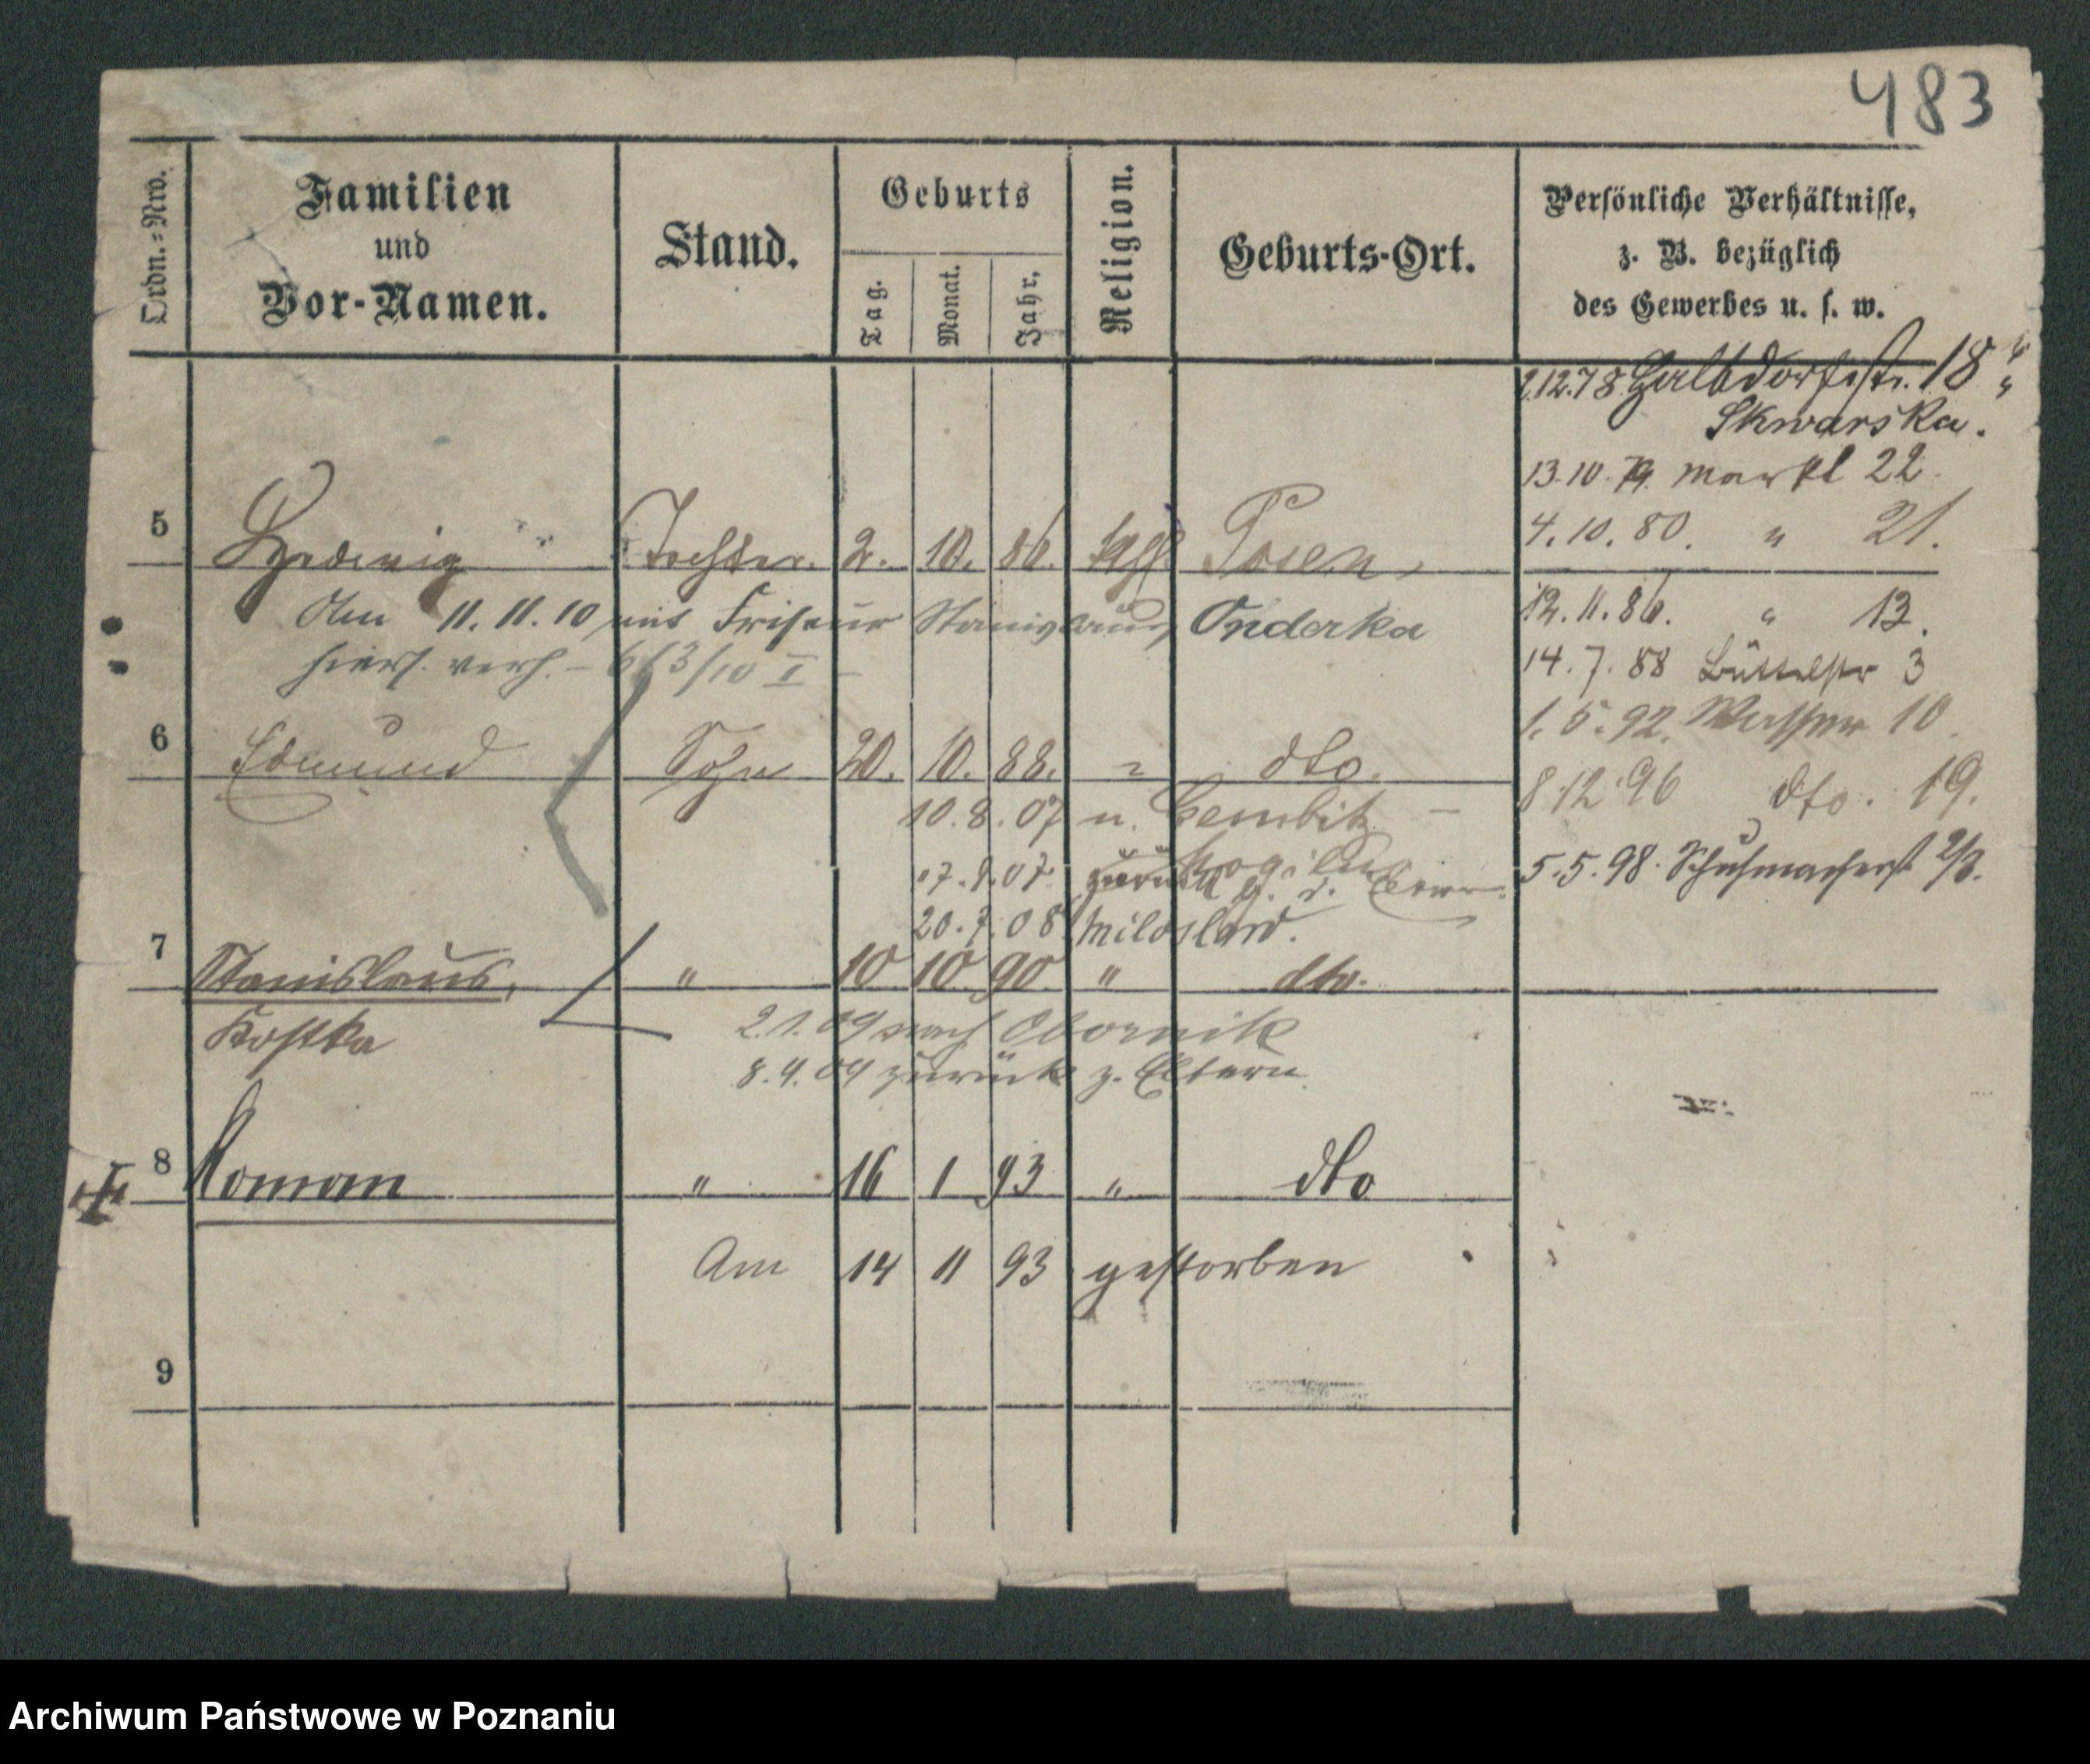 483
Ordn.=Nro.
Familien
und
Vor-Namen.
Stand.
Geburts
Tag.
Monat.
Jahr.
Religion.
Geburts-Ort.
Persönliche Verhältnisse,
z. B. bezüglich
des Gewerbes u. s. w.
2.12.78 Halbdorfstr. 18
Skwarska.
13.10.79. Markt 22
4.10.80. " 21.
5 Hedwig Tochter. 2. 10. 86. Posen,
Am 11.11.10 mit Friseur Stanislaus Onderka
hiers. verh. – 663/10 I –
12.11.86. " 13.
14.7.88 Büttelstr 3
1.5.92. Wasser 10
6 Edmund Sohn 20. 10. 88. " dto.
8.12.96 dto. 19.
10.8.07 n. Gembitz –
Mogilno
5.5.98. Schuhmacherst 2/3.
zurück
20.7.08 Miloslaw.
7 Stanislaus, " 10 10 90. " dto.
Kostka
2.1.09 nach Obornik
8.4.09 zurück z. Eltern.
8 Roman " 16 1 93 " dto
Am 14 11 93 gestorben
9
Archiwum Państwowe w Poznaniu